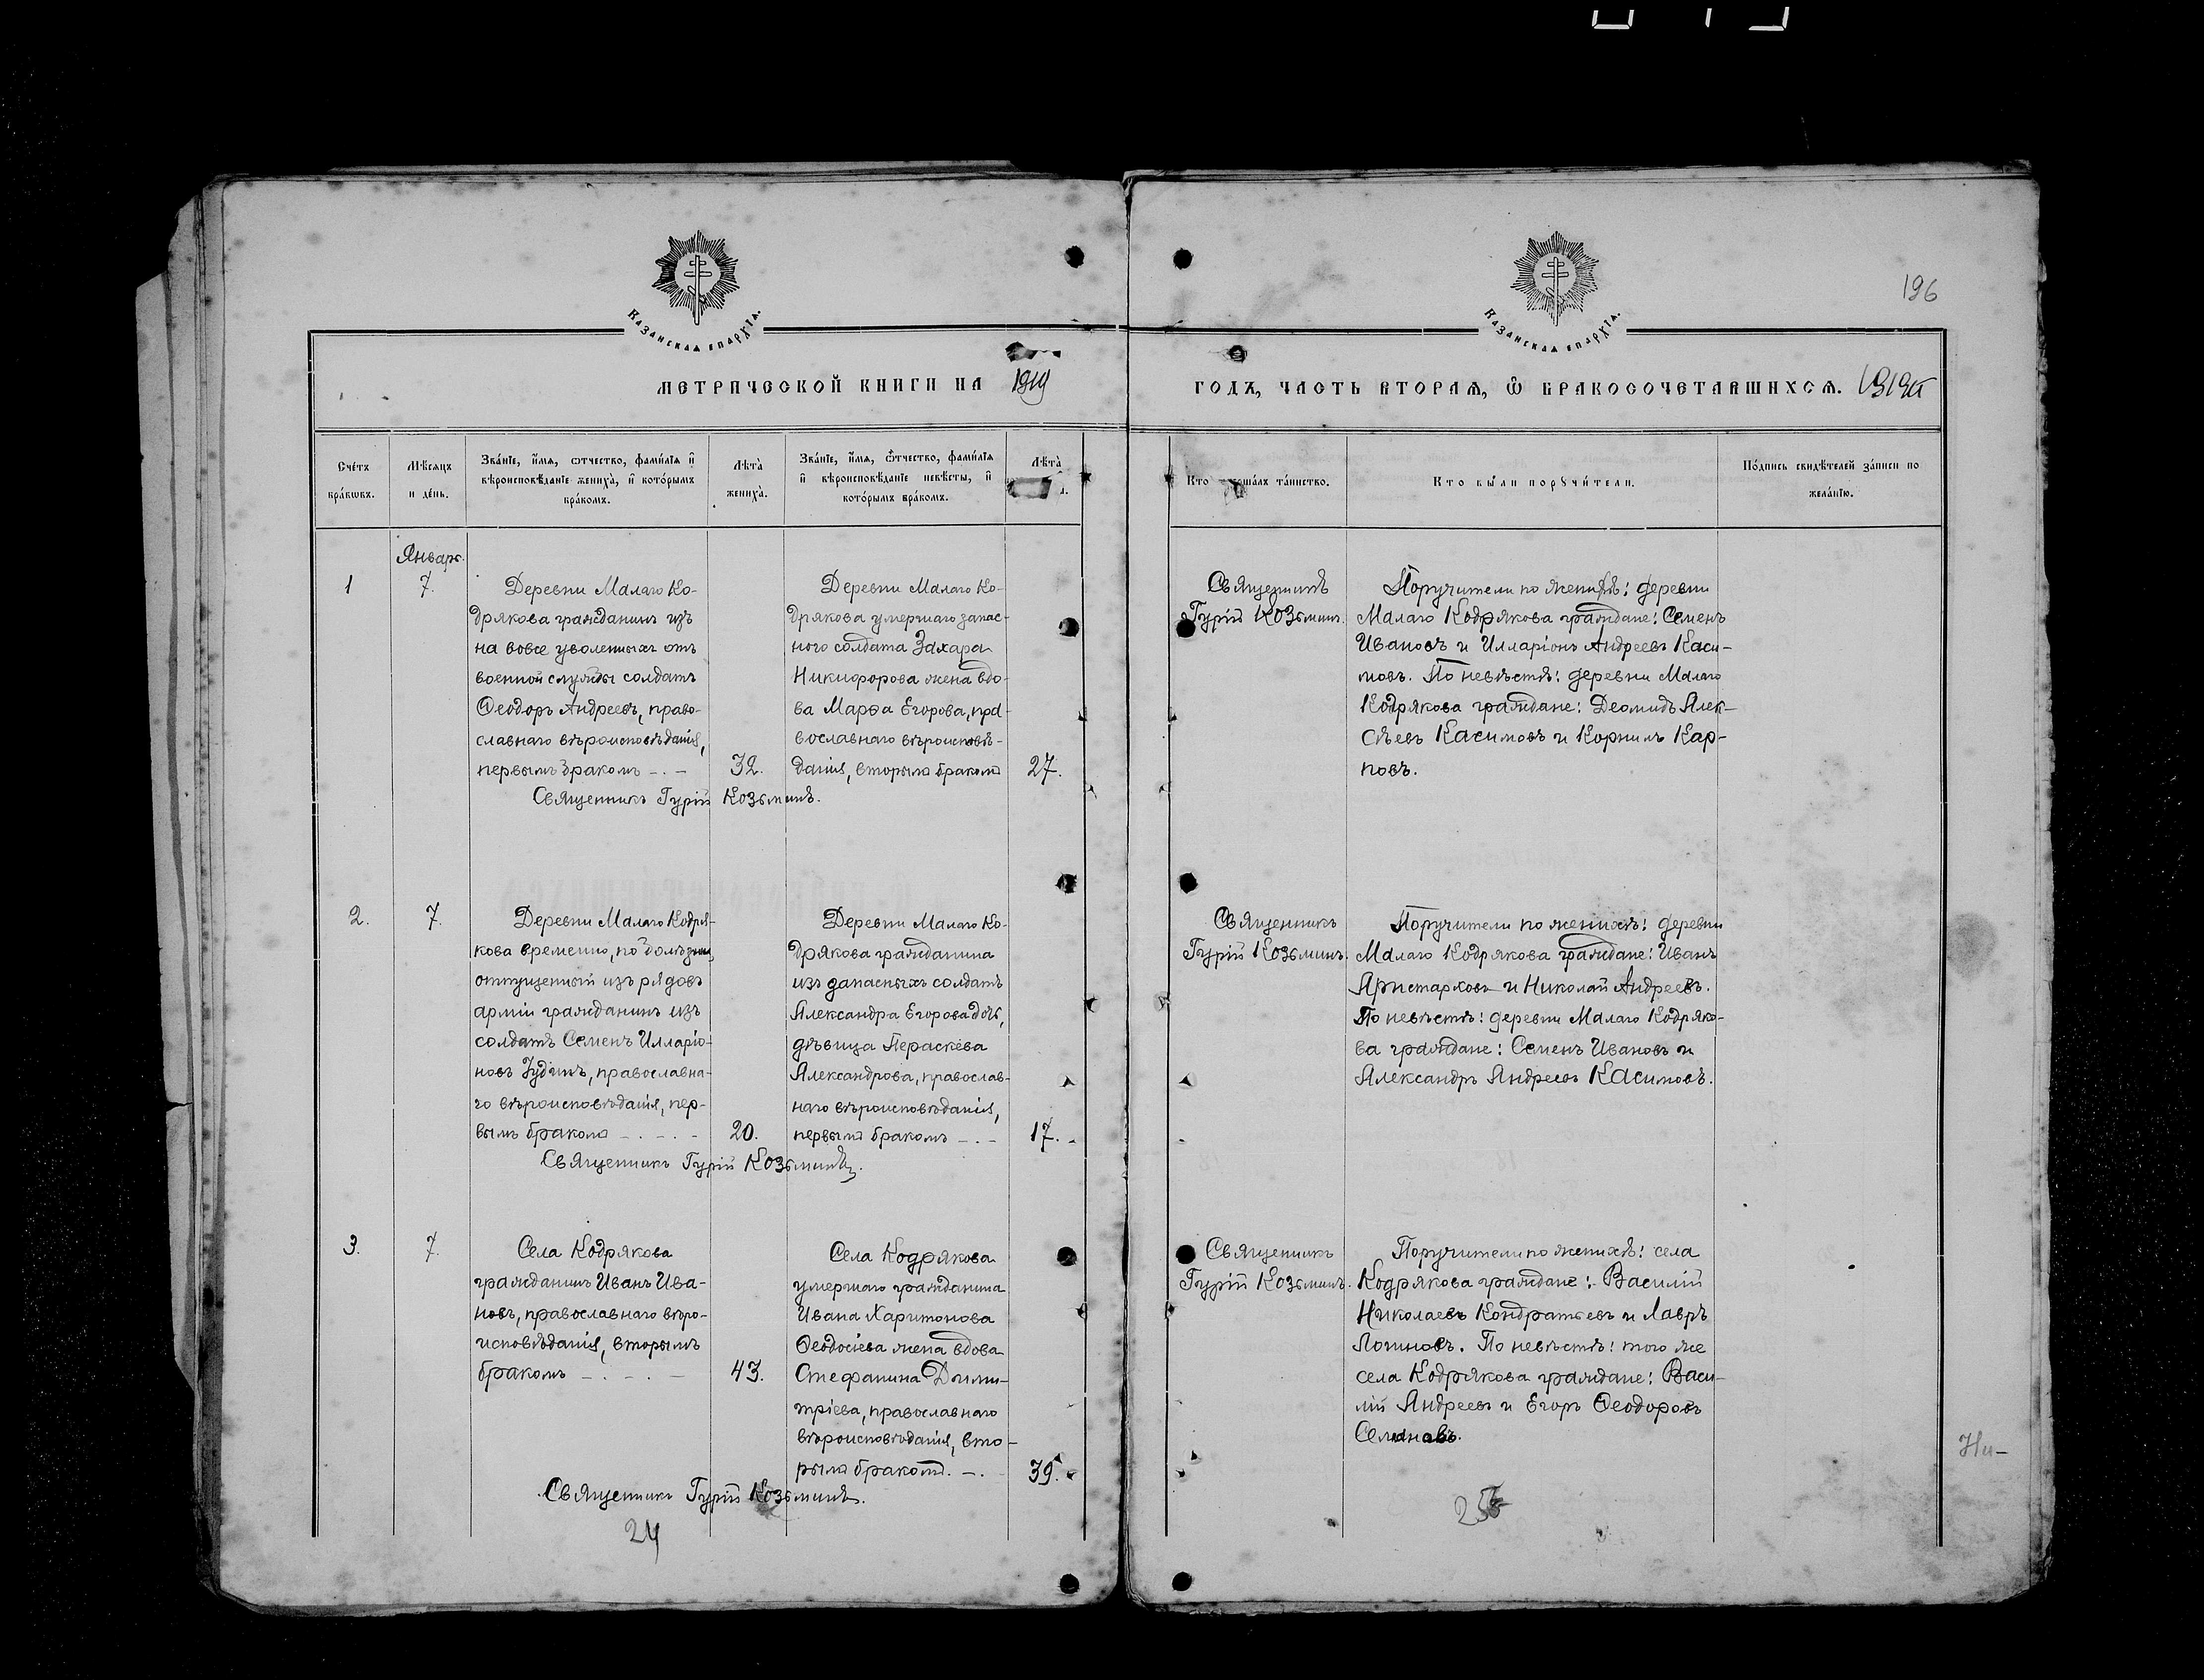 196
Казанская епархіа.
Казанская епархіа.
Метрической книги на 1919
годъ, часть вторая, ѡ бракосочетавшихся. 1919 г.
Сче́тъ бра́кѡвъ.
Мѣ́сяцъ и де́нь.
Зва́нїе, и́мя, ѻтчество, фами́лїя и вѣроисповѣ́данїе жениха̀, и кото́рымъ бра́комъ.
Лѣта̀ жениха̀.
Зва́нїе, и́мя, ѻтчество, фами́лїя и вѣроисповѣ́данїе невѣ́сты, и кото́рымъ бра́комъ.
Лѣта̀
Кто та́инство.
Кто бы́ли порꙋчи́тели.
По́дпись свидѣ́телей за́писи по жела́нїю.
Январь.
1
7.
Деревни Малаго Ко-
дрякова гражданинъ изъ
на вовсе уволенныхъ отъ
военной службы солдатъ
Ѳеодоръ Андреевъ, право-
славнаго вѣроисповѣданія,
первымъ бракомъ -.-
32.
Деревни Малаго Ко-
дрякова умершаго запас-
ного солдата Захара
Никифорова жена вдо-
ва Марѳа Егорова, пра-
вославнаго вѣроисповѣ-
данія, вторымъ бракомъ
27.
Священникъ Гурій Козьминъ.
Священникъ
Гурій Козьминъ.
Поручители по женихѣ: деревни
Малаго Кодрякова граждане: Семенъ
Ивановъ и Илларіонъ Андреевъ Каси-
мовъ. По невѣстѣ: деревни Малаго
Кодрякова граждане: Деомидъ Алек-
сѣевъ Касимовъ и Корнилъ Кар-
повъ.
2.
7.
Деревни Малаго Кодря-
кова временно, по болѣзни,
отпущенный изъ рядовъ
арміи гражданинъ изъ
солдатъ Семенъ Илларіо-
новъ Іудинъ, православна-
го вѣроисповѣданія, пер-
вымъ бракомъ -.-.-
20.
Деревни Малаго Ко-
дрякова гражданина
изъ запасныхъ солдатъ
Александра Егорова дочь,
дѣвица Параскева
Александрова, православ-
наго вѣроисповѣданія,
первымъ бракомъ -.-
17.-
Священникъ Гурій Козьминъ.
Священникъ
Гурій Козьминъ.
Поручители по женихѣ: деревни
Малаго Кодрякова граждане: Иванъ
Аристарховъ и Николай Андреевъ.
По невѣстѣ: деревни Малаго Кодряко-
ва граждане: Семенъ Ивановъ и
Александръ Андреевъ Касимовъ.
3.
7.
Села Кодрякова
гражданинъ Иванъ Ива-
новъ, православнаго вѣро-
исповѣданія, вторымъ
бракомъ -.-.-
43.
Села Кодрякова
умершаго гражданина
Ивана Харитонова
Ѳеодосіева жена вдова
Стефанина Дими-
тріева, православнаго
вѣроисповѣданія, вто-
рымъ бракомъ.-.
39.
Священникъ Гурій Козьминъ.
Священникъ
Гурій Козьминъ.
Поручители по женихѣ: села
Кодрякова граждане: Василій
Николаевъ Кондратьевъ и Лавръ
Логиновъ. По невѣстѣ: того же
села Кодрякова граждане: Васи-
лій Андреевъ и Егоръ Ѳеодоровъ
24
Ни-